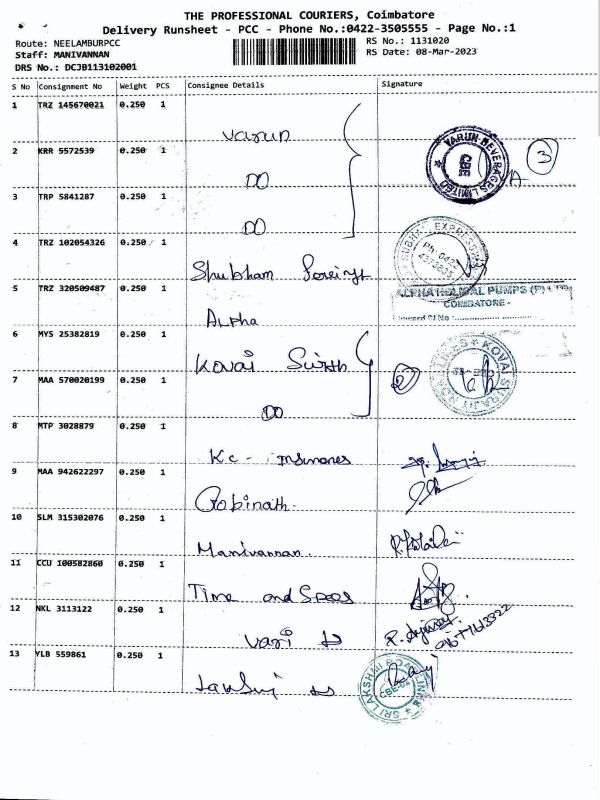 THE PROFESSIONAL COURIERS, Coimbatore
Delivery Runsheet - PCC - Phone No.:0422-3505555 - Page No.:1
Route: NEELAMBURPCC
Staff: MANIVANNAN
DRS No.: DCJB113102001
RS No.: 1131020
RS Date: 08-Mar-2023
S No Consignment No Weight PCS Consignee Details Signature
1 TRZ 145670021 0.250 1
Varun
VARUN BEVERAGES LIMITED CBE
3
2 KRR 5572539 0.250 1
DO
3 TRP 5841287 0.250 1
DO
4 TRZ 102054326 0.250 1
Shubham
SUBHAM EXPRESS
Ph: 0422
5 TRZ 320509487 0.250 1
Alpha
PUMPS (P)
COIMBATORE -
Inward Sl No :
6 MYS 25382819 0.250 1
Kovai
KOVAI
7 MAA 570020199 0.250 1
DO
2
8 MTP 3028879 0.250 1
Kc -
9 MAA 942622297 0.250 1
Gobinath.
10 SLM 315302076 0.250 1
Manivannan.
11 CCU 100582860 0.250 1
Time and
12 NKL 3113122 0.250 1
13 YLB 559861 0.250 1
SRI LAKSHMI